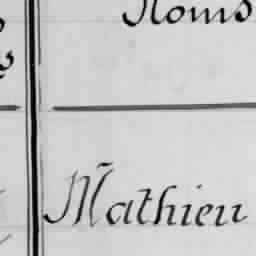 Noms
Mathieu